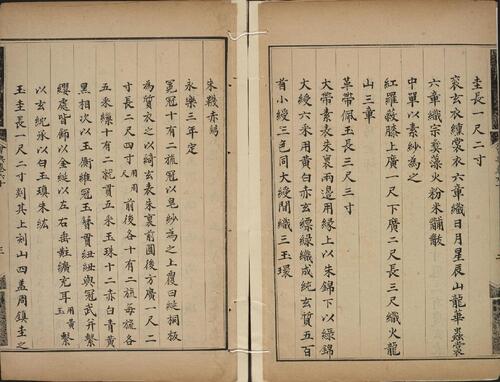 圭長一尺二寸
袞玄衣纁裳衣六章織日月星辰山龍華蟲裳
六章織宗彝藻火粉米黼黻
中單以素紗為之
紅羅蔽膝上廣一尺下廣二尺長三尺織火龍
山三章
革帶佩玉長三尺三寸
大帶素表朱裏兩邊用緣上以朱錦下以綠錦
大綬六采用黃白赤玄縹綠織成純玄質五百
首小綬三色同大綬間織三玉環
朱襪赤舄
永樂三年定
冕冠十有二旒冠以皂紗為之上覆曰綖桐板
為質衣之以綺玄表朱裏前圓後方廣一尺二
寸長二尺四寸用周尺前後各十有二旒每旒各
五采繅十有二就貫五采玉珠十二赤白青黃
黑相次以玉衡維冠玉簪貫紐紐與冠武并繫
纓處皆飾以金綖以左右垂黈纊充耳用黃玉繫
以玄紞承以白玉瑱朱紘
玉圭長一尺二寸剡其上刻山四蓋周鎮圭之